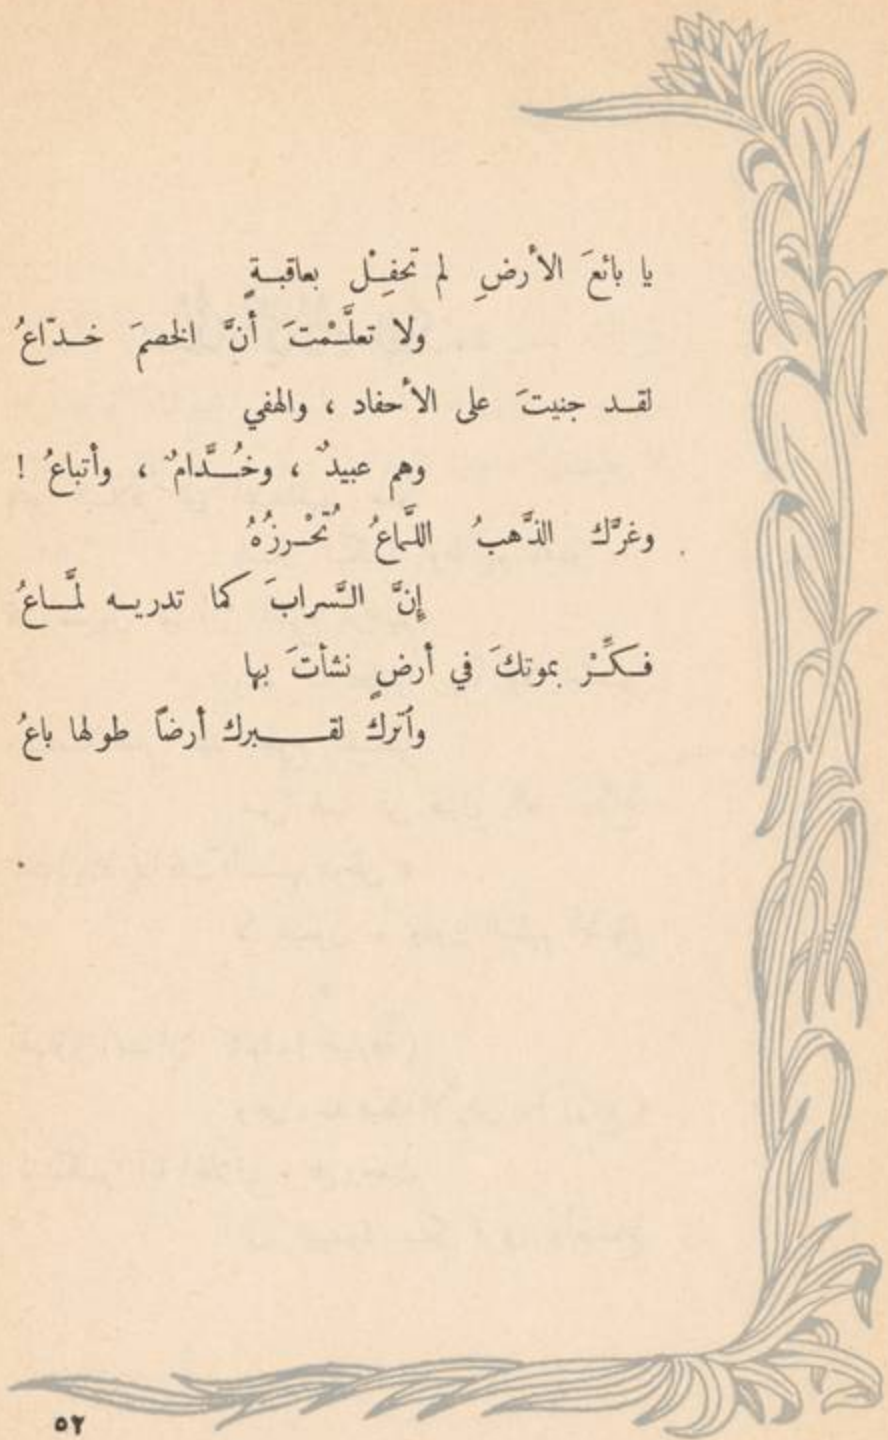 يا بائعَ الأرضِ لم تحفِلْ بعاقبةٍ
ولا تعلَّمْتَ أنَّ الخصمَ خدّاعُ
لقد جنيتَ على الأحفاد ، والهفي
وهم عبيدٌ ، وخُدَّامٌ ، وأتباعُ !
وغرَّك الذَّهبُ اللَّماعُ تُحْرزُهُ
إنَّ السَّرابَ كما تدريه لمَّاعُ
فكِّرْ بموتكَ في أرضٍ نشأتَ بها
وٱترك لقبرك أرضاً طولها باعُ
٥٢